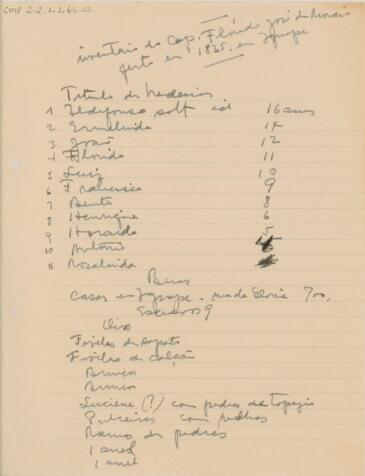 CMP 2.2.1.3.66-23
inventario do Cap. Florido José de Morais
feito em 1835, em Iguape
Titulo de herdeiros
1 Ildefonso solt id 16 anos
2 Ermelinda 14
3 João 12
4 Florido 11
5 Luiz 10
6 Francisca 9
7 Bento 8
8 Henrique 6
9 5
10 Antonio
11 Rosalinda
Bens
Casas em Iguape. rua da 700,
Escravos 9
Ouro
Fivelas de sapato
Fivelas de calção
Brincos
Brincos
Luciene (?) com pedras de topazio
Pulseiras com pedras
Ramo de pedras
1 anel
1 anel